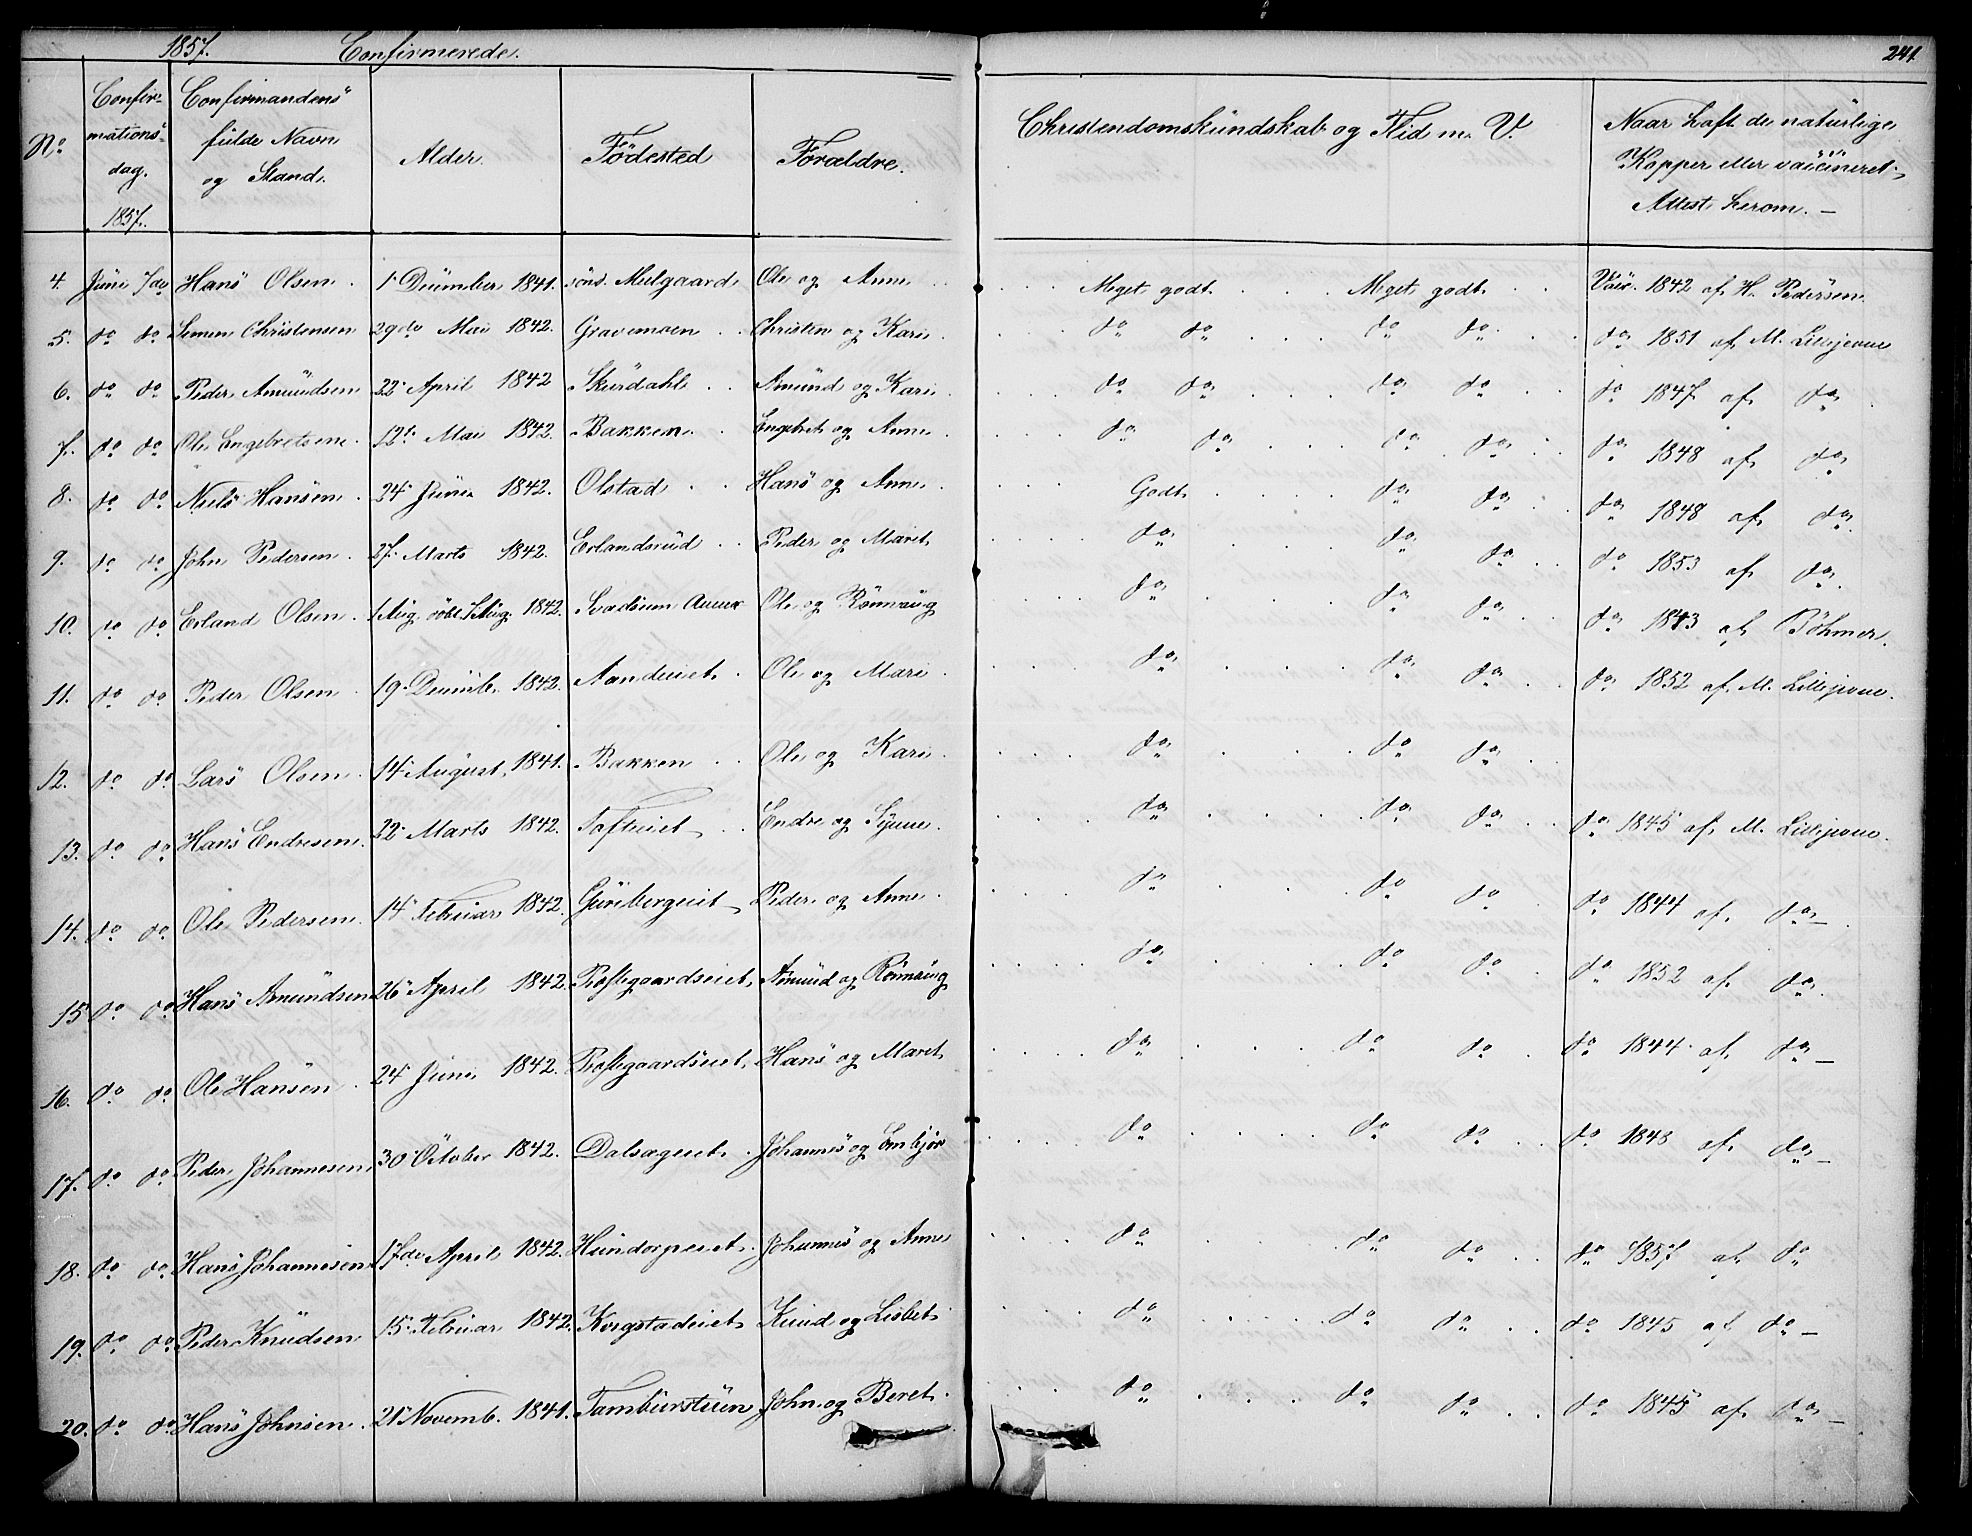 1857. Confirmerede. 241
No Confirmationsdag. 1857. Confirmandens fulde Navn og Stand. Alder. Födested Forældre. Christendomskundskab og Flid m. V. Naar haft de naturlige Kopper eller vaccineret. Attest herom. —
4. Juni 7de Hans Olsen . 1 December 1841. Melgaard Ole og Anne . . . . . Meget godt . . . Meget godt . . Vac. 1842 af H. Pedersen
5. do do Simen Christensen 29de Mai 1842. Gravemoen . . Christen og Kari . . . . do do . . . do do . . do 1851 af M. Lillejevne
6. do do Peder Amundsen 22 April 1842 Skurdahl . . Amund og Kari . . . . do do . . . do do . . do 1847 af do .
7. do do Ole Engebretsen . 12te Mai 1842. Bakken . . Engebret og Anne . . . . do do . . . do do . . do 1848 af do
8. do do Niels Hansen . 24 Juni 1842. Olstad . . Hans og Anne . . . . Godt . . . do do . . do 1848 af do
9. do do John Pedersen . 27 Marts 1842. Erlandsrud . . Peder og Marit . . . . do . . . do do . . do 1853 af do .
10. do do Erland Olsen . 1 Aug. 1842. Ole og Rönnaug . . . . do . . . do do . . do 1843 af Böhmer .
11. do do Peder Olsen . 19 Decemb. 1842. . Ole og Mari . . . . do . . . do do . . do 1852 af M. Lillejevne.
12. do do Lars Olsen . 14 August 1841. Bakken . . Ole og Kari . . . . do . . . do do .
13. do do Hans Endresen . 22 Marts 1842. Tofteeiet . . Endre og Synne . . . . do . . . do do . . do 1845 af M. Lillejevne.
14. do do Ole Pedersen . 14 Februar 1842. Peder og Anne . . . . do . . . do do . do 1844 af do — .
15 do do Hans Amundsen 26 April 1842. Prestegaardseiet Amund og Rönnaug . . . . do . . . do do . do 1852 af do .
16. do do Ole Hansen . 24 Juni 1842. Prestegaardseiet Hans og Marit . . . . do . . . do do . do 1844 af do —
17. do do Peder Johannesen 30 October 1842. Dalsegeiet . Johannes og Embjör . . . . do . . . do do . . do 1843 af do —
18. do do Hans Johannesen 17de April 1842. Hundorpeiet . Johannes og Anne . . . . do . . . do do . . do 1857 af do
19. do do Peder Knudsen 15 Februar 1842. Korgstadeiet Knud og Lisbet . . . . do . . . do do . . do 1845 af do —
20. do do Hans Johnsen . 21 Novemb. 1841. Tamburstuen John og Beret . . . . do . . . do do . . do 1845 af do —